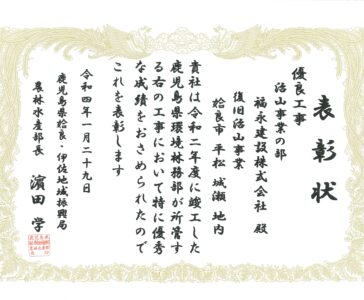 表彰状
優良工事
治山事業の部
福永建設株式会社 殿
復旧治山事業
姶良市 平松 城瀬 地内
貴社は令和二年度に竣工した
鹿児島県環境林務部が所管す
る右の工事において特に優秀
な成績をおさめられたので
これを表彰します
令和四年一月二十九日
鹿児島県姶良・伊佐地域振興局
農林水産部長 濵田 学